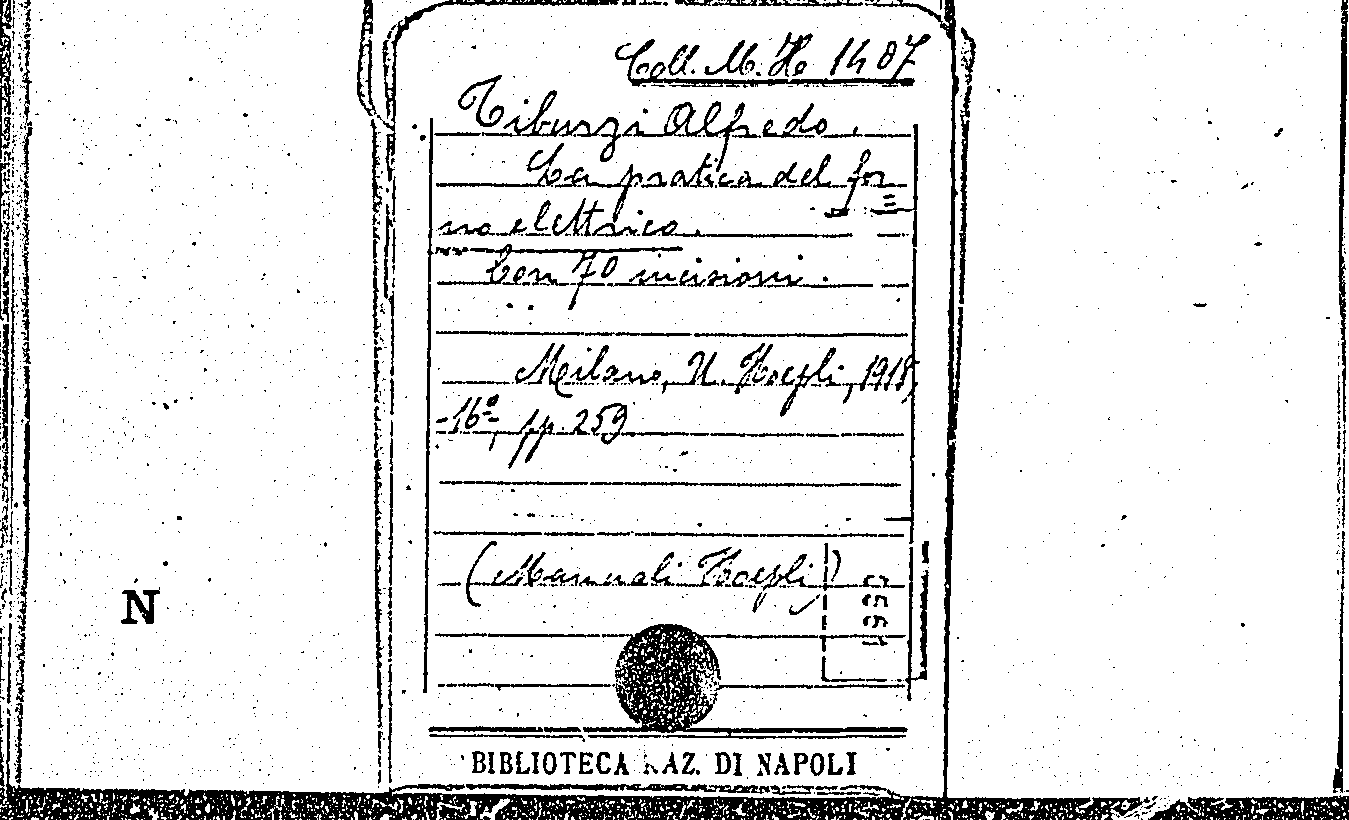 Coll. M. H 1407
Tiburzi Alfredo.
La pratica del for
no elettrico.
Con 70 incisioni.
Milano, U. Hoepli, 1918,
-16º, pp. 259
(Manuali Hoepli)
N
BIBLIOTECA NAZ. DI NAPOLI